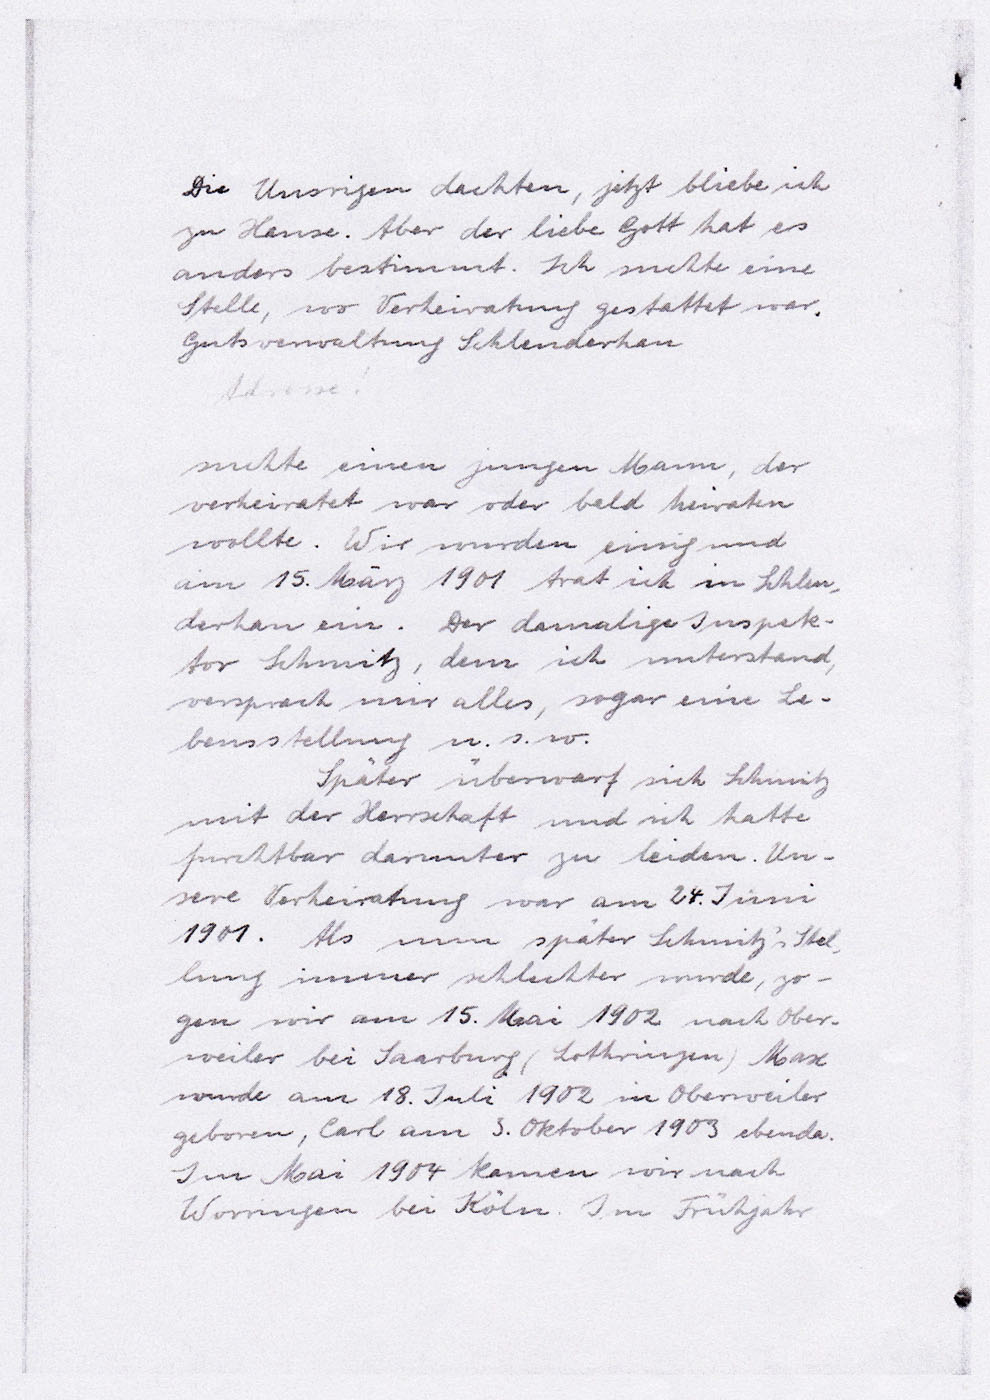 Die Unsrigen dachten, jetzt bliebe ich
zu Hause. Aber der liebe Gott hat es
anders bestimmt. Ich suchte eine
Stelle, wo Verheiratung gestattet war.
Gutsverwaltung Schlenderhan
Adresse!
suchte einen jungen Mann, der
verheiratet war oder bald heiraten
wollte. Wir wurden einig und
am 15. März 1901 trat ich in Schlen-
derhan ein. Der damalige Inspek-
tor Schmitz, dem ich unterstand,
versprach mir alles, sogar eine Le-
bensstellung u. s. w.
Später überwarf sich Schmitz
mit der Herrschaft und ich hatte
furchtbar darunter zu leiden. Un-
sere Verheiratung war am 24. Juni
1901. Als nun später Schmitz's Stel-
lung immer schlechter wurde, zo-
gen wir am 15. Mai 1902 nach Ober-
weiler bei Saarburg (Lothringen) Max
wurde am 18. Juli 1902 in Oberweiler
geboren, Carl am 3. Oktober 1903 ebenda.
Im Mai 1904 kamen wir nach
Worringen bei Köln. Im Frühjahr